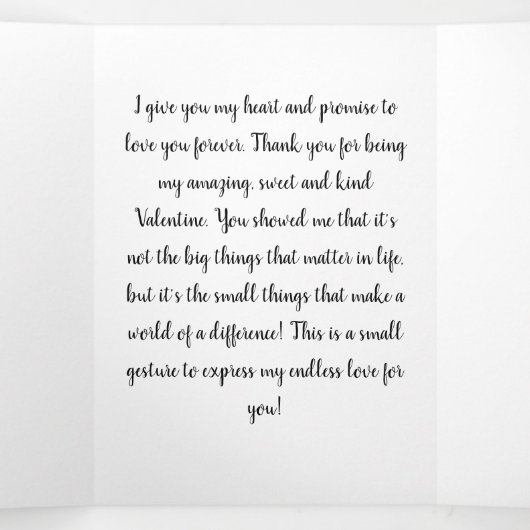 I give you my heart and promise to
love you forever. Thank you for being
my amazing, sweet and kind
Valentine. You showed me that it's
not the big things that matter in life,
but it's the small things that make a
world of a difference! This is a small
gesture to express my endless love for
you!